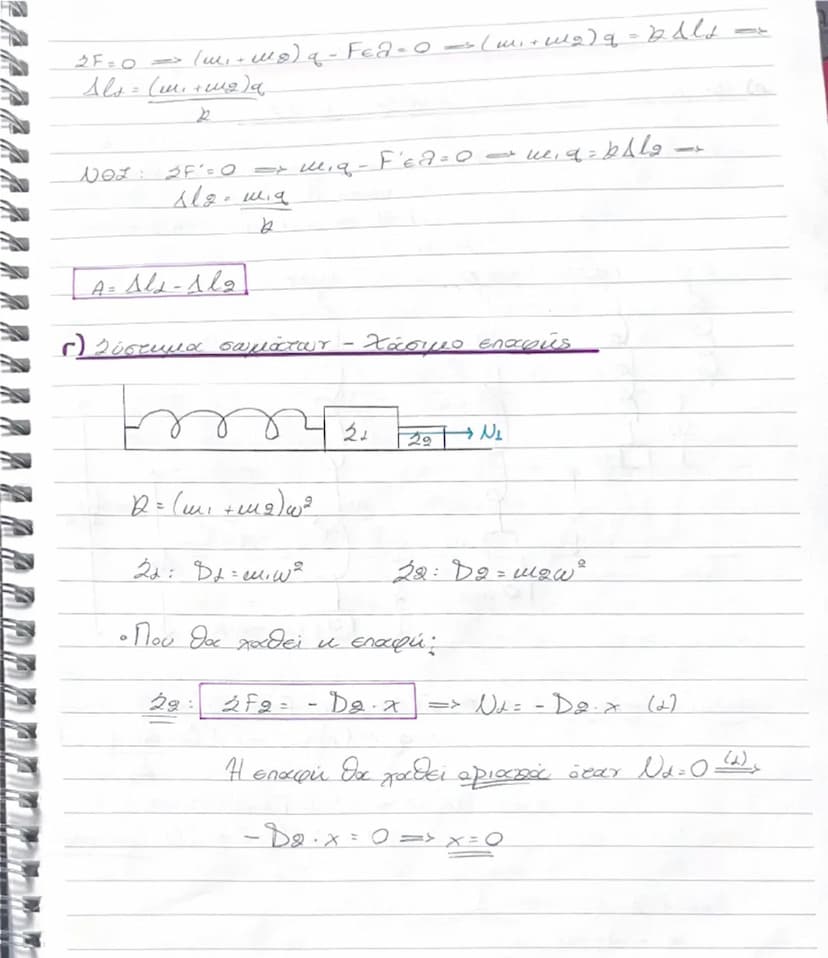 ΣF=0 => (m₁+m₂)g - Fελ=0 => (m₁+m₂)g = kΔl₁ =>
Δl₁ = (m₁+m₂)g
k
ΝΘΙ: ΣF'=0 => m₁g - F'ελ=0 => m₁g = kΔl₂ =>
Δl₂ = m₁g
k
A = Δl₁ - Δl₂
Γ) Σύστημα σωμάτων - Χάσιμο επαφής
Σ₁ Σ₂ N₁
k = (m₁ + m₂)ω²
Σ₁: D₁ = m₁ω² Σ₂: D₂ = m₂ω²
• Πού θα χαθεί η επαφή;
Σ₂: ΣF₂ = - D₂·x => N₁ = - D₂·x (1)
Η επαφή θα χαθεί οριακά όταν N₁=0 (1)=>
- D₂·x = 0 => x=0